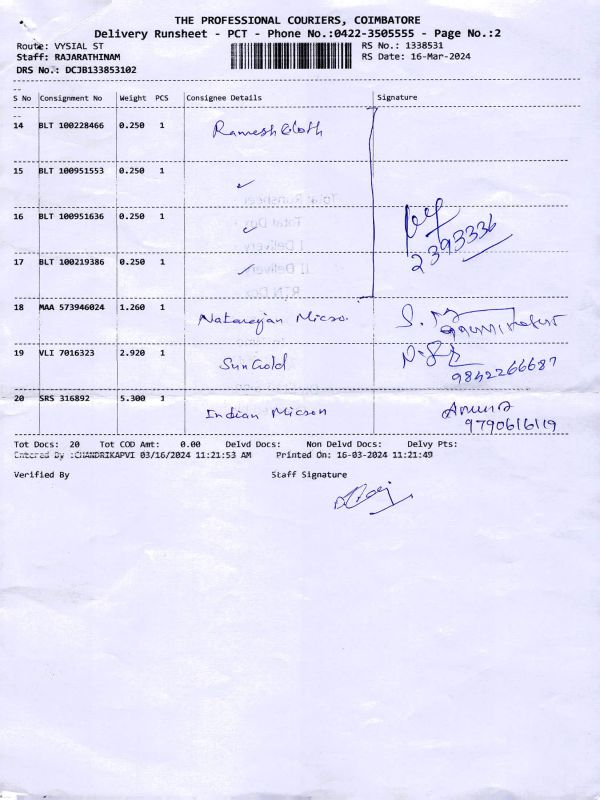 THE PROFESSIONAL COURIERS, COIMBATORE
Delivery Runsheet - PCT - Phone No.:0422-3505555 - Page No.:2
Route: VYSIAL ST
RS No.: 1338531
Staff: RAJARATHINAM
RS Date: 16-Mar-2024
DRS No.: DCJB133853102
S No Consignment No Weight PCS Consignee Details Signature
14 BLT 100228466 0.250 1 Ramesh Cloth
15 BLT 100951553 0.250 1
16 BLT 100951636 0.250 1
2393336
17 BLT 100219386 0.250 1
18 MAA 573946024 1.260 1 Natarajan Micro.
19 VLI 7016323 2.920 1 SunGold
9842266687
20 SRS 316892 5.300 1 Indian Micson
9790616119
Tot Docs: 20 Tot COD Amt: 0.00 Delvd Docs: Non Delvd Docs: Delvy Pts:
Entered By :CHANDRIKAPVI 03/16/2024 11:21:53 AM Printed On: 16-03-2024 11:21:49
Verified By Staff Signature